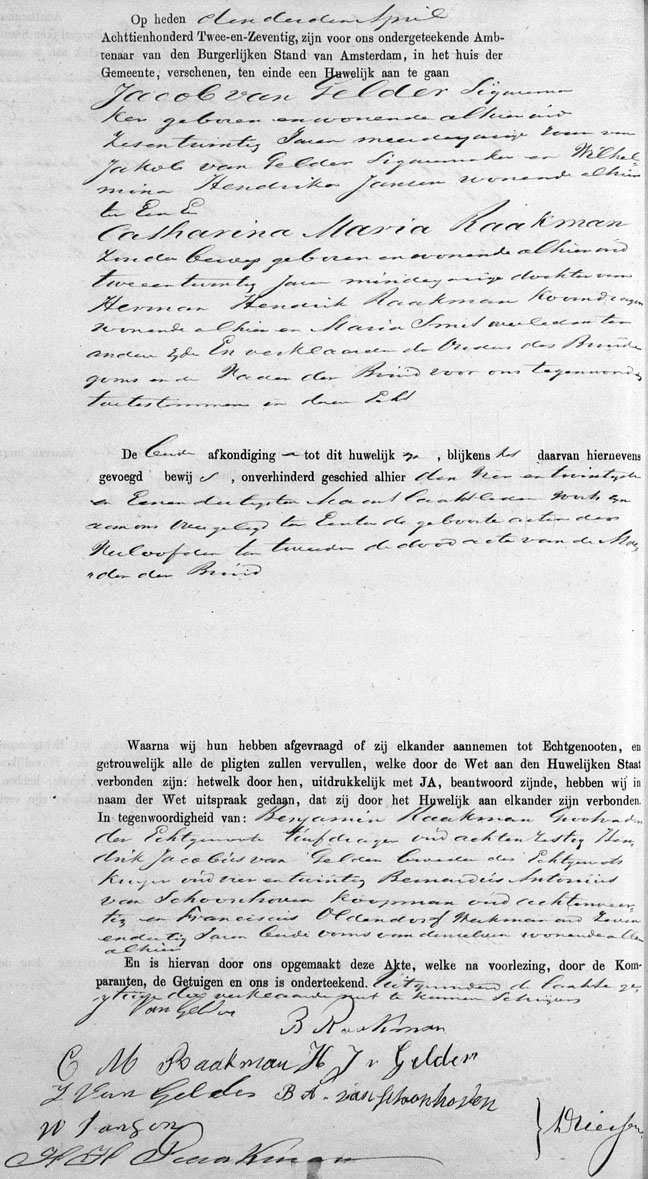 Op heden den derden April
Achttienhonderd Twee-en-Zeventig, zijn voor ons ondergeteekende Amb-
tenaar van den Burgerlijken Stand van Amsterdam, in het huis der
Gemeente, verschenen, ten einde een Huwelijk aan te gaan
Jacob van Gelder Sigarenma
ker geboren en wonende alhier oud
Zesentwintig Jaren meerderjarige Zoon van
Jakob van Gelder Sigarenmaker en Wilhel-
mina Hendrika Jansen wonende alhier
ter Eenre
Catharina Maria Raakman
Zonder beroep geboren en wonende alhier oud
tweeentwintig Jaren minderjarige dochter van
Herman Hendrik Raakman Koorndrager
wonende alhier en Maria Smit overleden ter
andere zyde En verklaarden de Ouders des Bruide
goms en de Vader der Bruid voor ons tegenwoordig
toetestemmen in deze Echt
De Beide afkondigingen tot dit huwelijk zyn, blijkens het daarvan hiernevens
gevoegd bewijs, onverhinderd geschied alhier den Vier en twintigsten
en Eenendertigsten Maart laatstleden Voorts zyn
aan ons overgelegd ten Eerste de geboorteacten der
Verloofden ten tweeden de doodacte van de Moe
der der Bruid
Waarna wij hun hebben afgevraagd of zij elkander aannemen tot Echtgenooten, en
getrouwelijk alle de pligten zullen vervullen, welke door de Wet aan den Huwelijken Staat
verbonden zijn: hetwelk door hen, uitdrukkelijk met JA, beantwoord zijnde, hebben wij in
naam der Wet uitspraak gedaan, dat zij door het Huwelijk aan elkander zijn verbonden.
In tegenwoordigheid van: Benjamin Raakman Grootvader
der Echtgenoote Turfdrager oud achtenzestig Hen
drik Jacobus van Gelder broeder des Echtgenoots
Kuiper oud vier en twintig Bernardus Antonius
van Schoonhoven Koopman oud achtenveer
tig en Franciscus Oldendorf Werkman oud Zeven
endertig Jaren beide ooms van denzelven wonende allen
alhier
En is hiervan door ons opgemaakt deze Akte, welke na voorlezing, door de Kom-
paranten, de Getuigen en ons is onderteekend. Uitgezonderd de laatste ge-
tuige die verklaarde niet te kunnen Schrijven
Van Gelder
B Raakman
C M Raakman H J v Gelder
J Van Gelder B A van Schoonhoven
W Jansen
H H Raakman